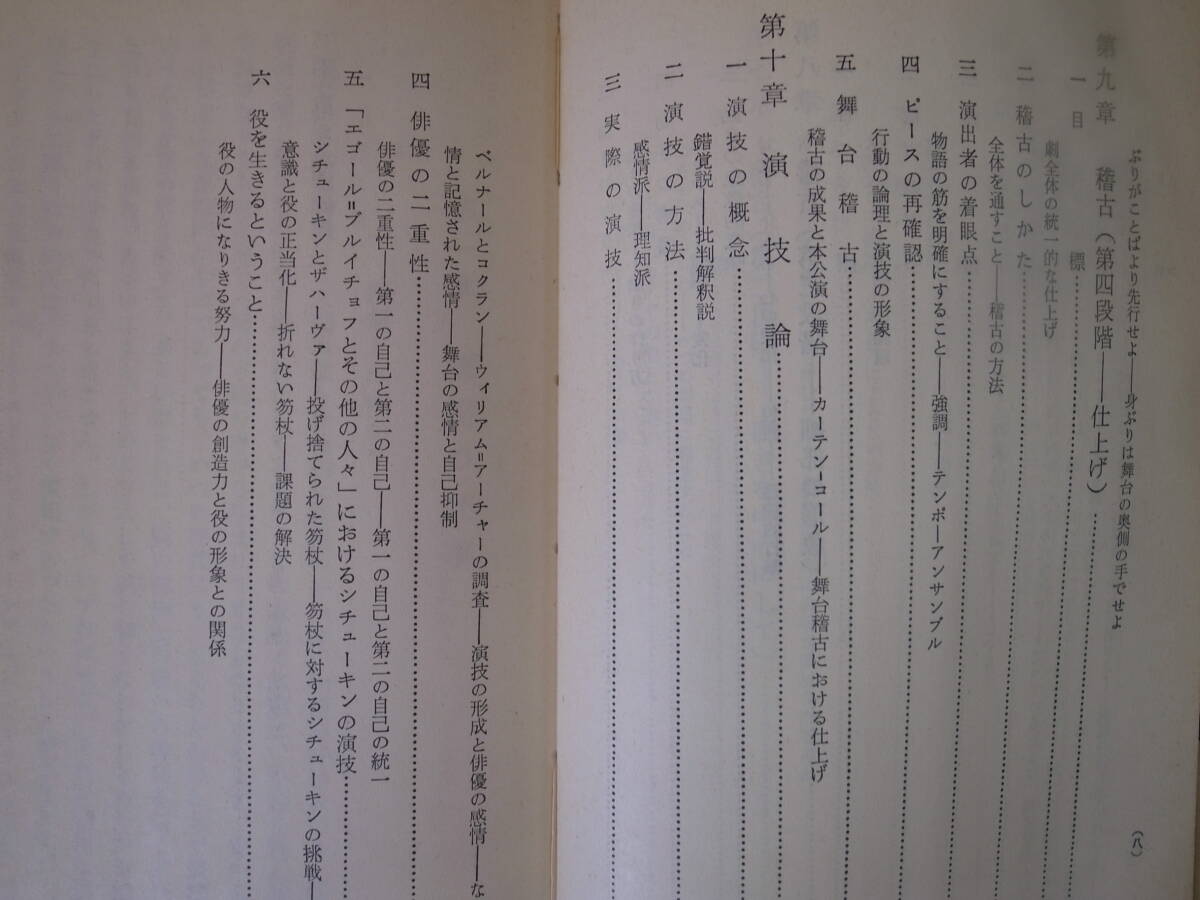 ぶりがことばより先行せよ――身ぶりは舞台の奥側の手でせよ
第九章 稽古(第四段階――仕上げ)
一 目標
劇全体の統一的な仕上げ
二 稽古のしかた
全体を通すこと――稽古の方法
三 演出者の着眼点
物語の筋を明確にすること――強調――テンポ―アンサンブル
四 ピースの再確認
行動の論理と演技の形象
五 舞台稽古
稽古の成果と本公演の舞台――カーテン=コール――舞台稽古における仕上げ
第十章 演技論
一 演技の概念
錯覚説――批判解釈説
二 演技の方法
感情派――理知派
三 実際の演技
(八)
ベルナールとコクラン――ウィリアム=アーチャーの調査――演技の形成と俳優の感情――な
情と記憶された感情――舞台の感情と自己抑制
四 俳優の二重性
俳優の二重性――第一の自己と第二の自己――第一の自己と第二の自己の統一
五 「エゴール=ブルイチョフとその他の人々」におけるシチューキンの演技
シチューキンとザハーヴァ――投げ捨てられた笏杖――笏杖に対するシチューキンの挑戦―
意識と役の正当化――折れない笏杖――課題の解決
六 役を生きるということ
役の人物になりきる努力――俳優の創造力と役の形象との関係